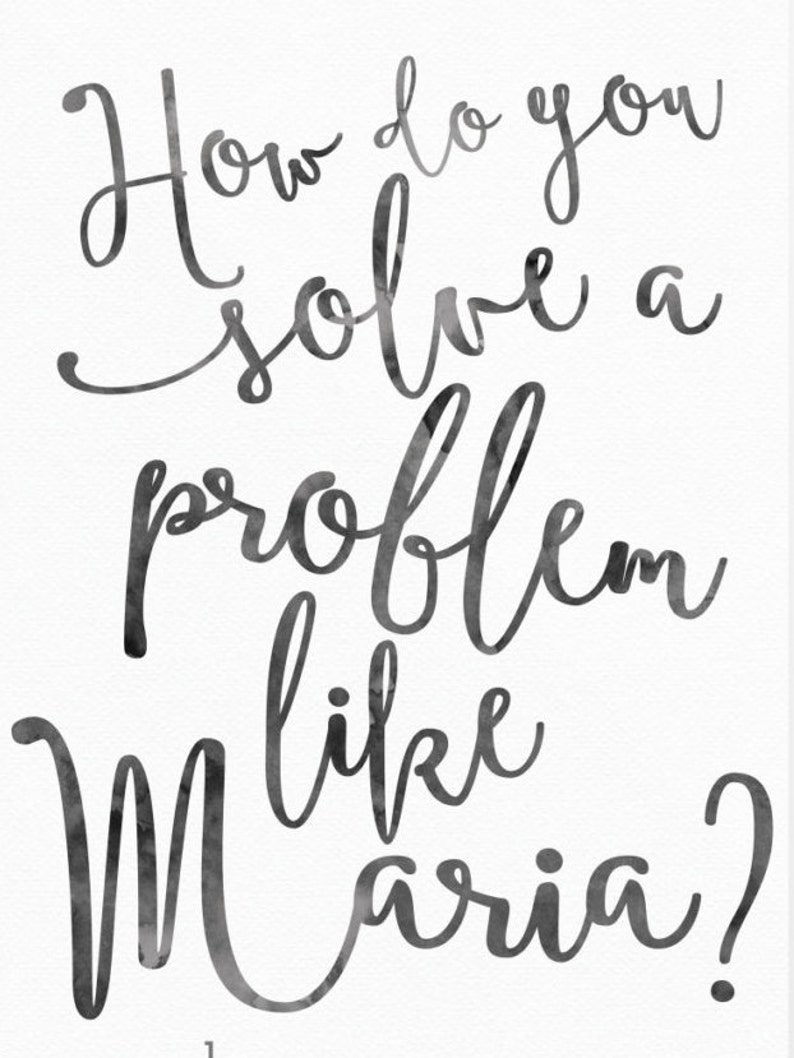 How do you
solve a
problem
like
Maria?